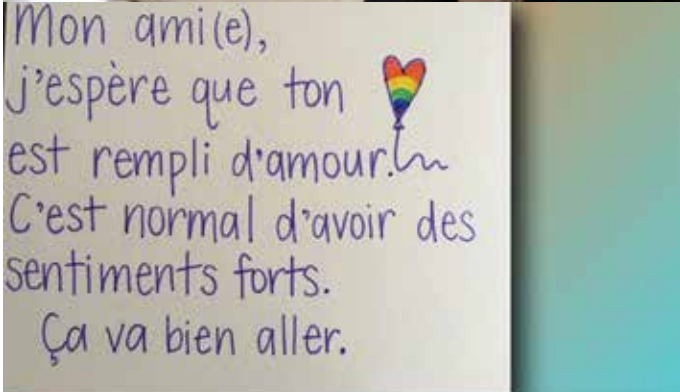 Mon ami(e),
j'espère que ton
est rempli d'amour.
C'est normal d'avoir des
sentiments forts.
Ça va bien aller.